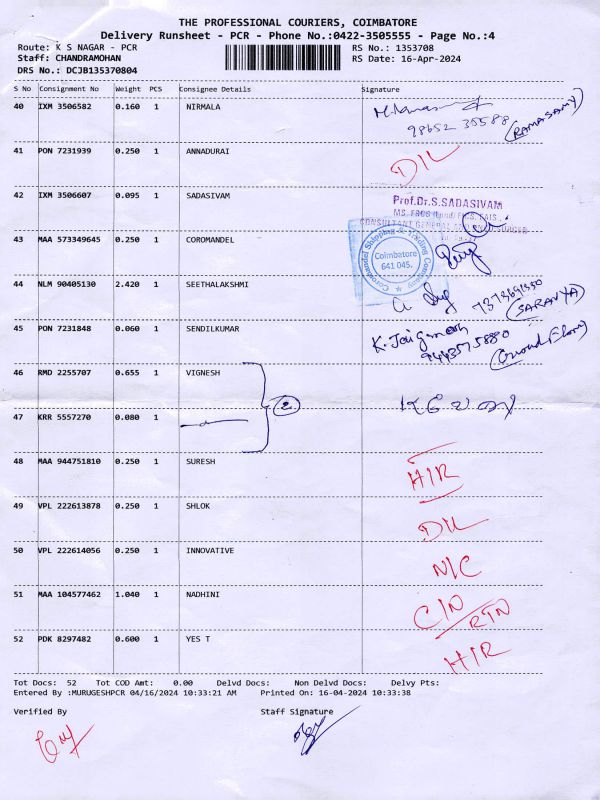 THE PROFESSIONAL COURIERS, COIMBATORE
Delivery Runsheet - PCR - Phone No.:0422-3505555 - Page No.:4
Route: K S NAGAR - PCR RS No.: 1353708
Staff: CHANDRAMOHAN RS Date: 16-Apr-2024
DRS No.: DCJB135370804
S No Consignment No Weight PCS Consignee Details Signature
40 IXM 3506582 0.160 1 NIRMALA
98652 35588 (RAMASAMY)
41 PON 7231939 0.250 1 ANNADURAI D/L
42 IXM 3506607 0.095 1 SADASIVAM
Prof.Dr.S.SADASIVAM
43 MAA 573349645 0.250 1 COROMANDEL
Coromandel Shipping & Trading Company
Coimbatore
641 045.
44 NLM 90405130 2.420 1 SEETHALAKSHMI
(SARANYA)
45 PON 7231848 0.060 1 SENDILKUMAR
(Ground Floor)
46 RMD 2255707 0.655 1 VIGNESH
2
47 KRR 5557270 0.080 1
48 MAA 944751810 0.250 1 SURESH H/R
49 VPL 222613878 0.250 1 SHLOK D/L
50 VPL 222614056 0.250 1 INNOVATIVE N/C
51 MAA 104577462 1.040 1 NADHINI C/N RTN
52 PDK 8297482 0.600 1 YES T H/R
Tot Docs: 52 Tot COD Amt: 0.00 Delvd Docs: Non Delvd Docs: Delvy Pts:
Entered By :MURUGESHPCR 04/16/2024 10:33:21 AM Printed On: 16-04-2024 10:33:38
Verified By Staff Signature